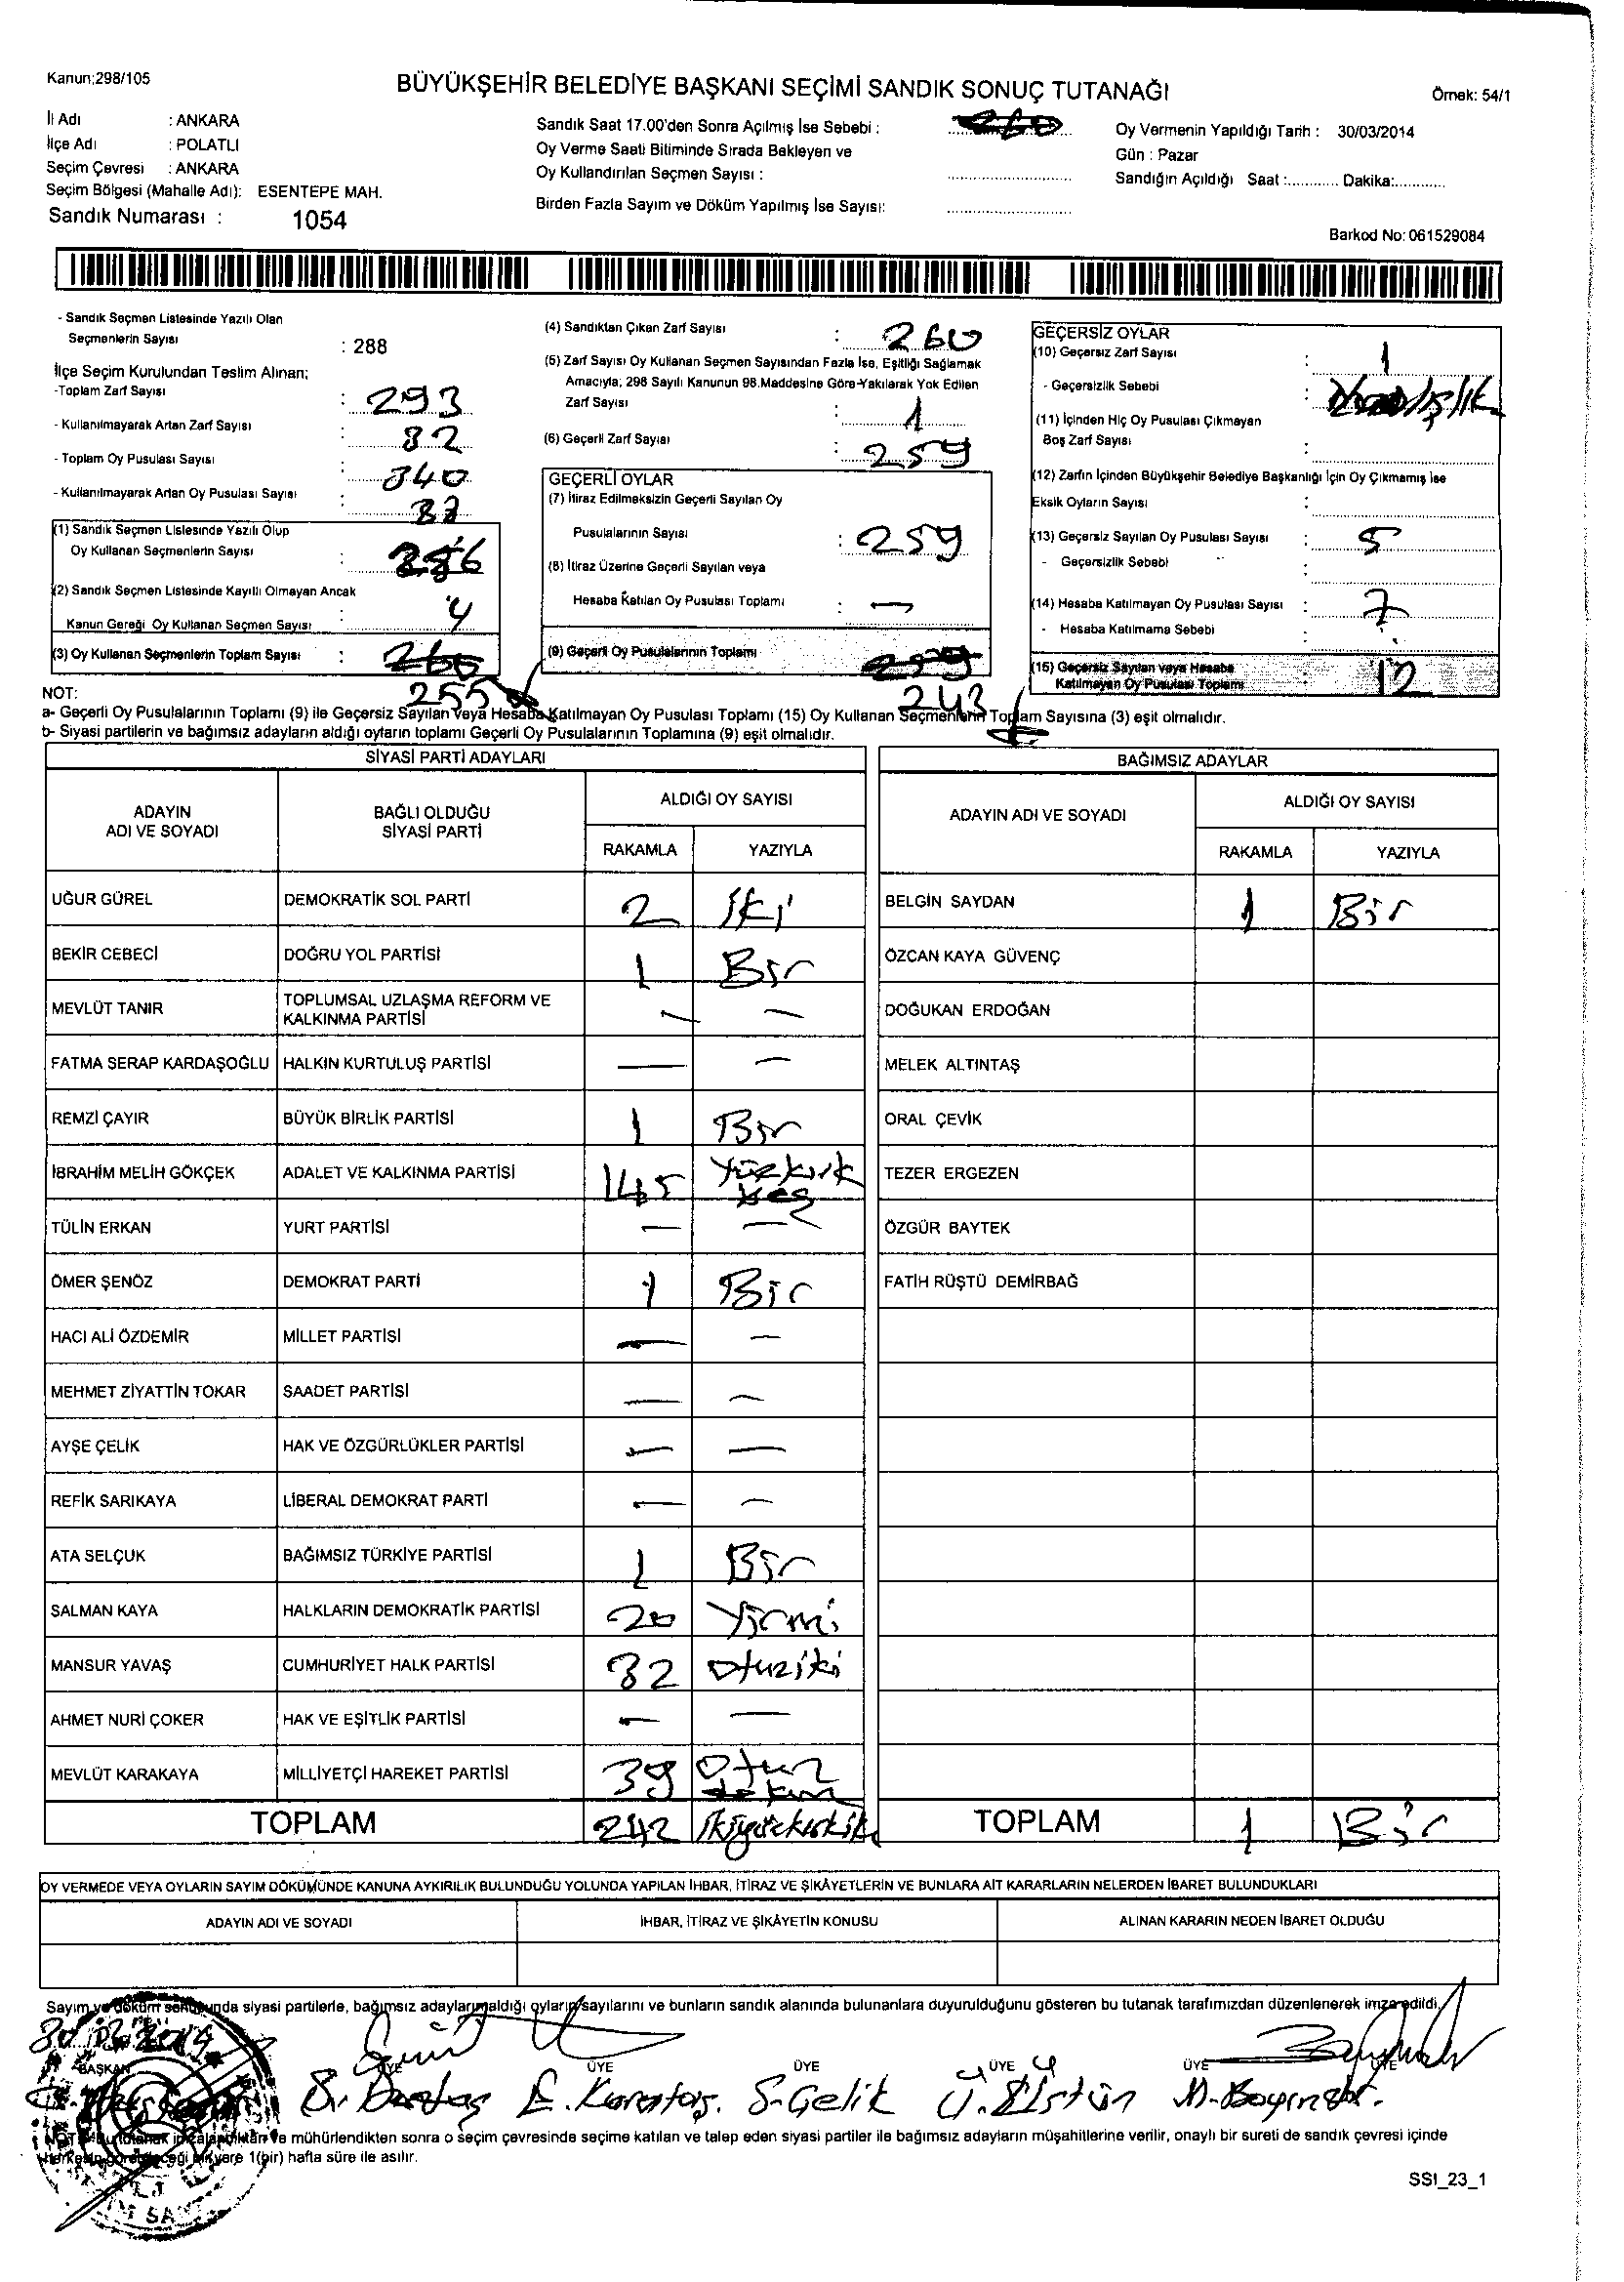 Kanun;298/105
BÜYÜKŞEHİR BELEDİYE BAŞKANI SEÇİMİ SANDIK SONUÇ TUTANAĞI
Örnek: 54/1
İl Adı : ANKARA
İlçe Adı : POLATLI
Seçim Çevresi : ANKARA
Seçim Bölgesi (Mahalle Adı): ESENTEPE MAH.
Sandık Numarası : 1054
Sandık Saat 17.00'den Sonra Açılmış İse Sebebi :
Oy Verme Saati Bitiminde Sırada Bekleyen ve
Oy Kullandırılan Seçmen Sayısı :
Birden Fazla Sayım ve Döküm Yapılmış İse Sayısı:
Oy Vermenin Yapıldığı Tarih : 30/03/2014
Gün : Pazar
Sandığın Açıldığı Saat :........... Dakika:...........
Barkod No: 061529084
- Sandık Seçmen Listesinde Yazılı Olan
Seçmenlerin Sayısı : 288
İlçe Seçim Kurulundan Teslim Alınan:
-Toplam Zarf Sayısı : 293
- Kullanılmayarak Artan Zarf Sayısı : 32
- Toplam Oy Pusulası Sayısı : 340
- Kullanılmayarak Artan Oy Pusulası Sayısı :
(1) Sandık Seçmen Listesinde Yazılı Olup
Oy Kullanan Seçmenlerin Sayısı :
(2) Sandık Seçmen Listesinde Kayıtlı Olmayan Ancak
Kanun Gereği Oy Kullanan Seçmen Sayısı : 4
(3) Oy Kullanan Seçmenlerin Toplam Sayısı : 260
255
(4) Sandıktan Çıkan Zarf Sayısı : 260
(5) Zarf Sayısı Oy Kullanan Seçmen Sayısından Fazla İse, Eşitliği Sağlamak
Amacıyla; 298 Sayılı Kanunun 98.Maddesine Göre-Yakılarak Yok Edilen
Zarf Sayısı : 1
(6) Geçerli Zarf Sayısı : 259
GEÇERLİ OYLAR
(7) İtiraz Edilmeksizin Geçerli Sayılan Oy
Pusulalarının Sayısı : 259
(8) İtiraz Üzerine Geçerli Sayılan veya
Hesaba Katılan Oy Pusulası Toplamı : —
(9) Geçerli Oy Pusulalarının Toplamı 259
243
GEÇERSİZ OYLAR
(10) Geçersiz Zarf Sayısı : 1
- Geçersizlik Sebebi :
(11) İçinden Hiç Oy Pusulası Çıkmayan
Boş Zarf Sayısı :
(12) Zarfın İçinden Büyükşehir Belediye Başkanlığı İçin Oy Çıkmamış İse
Eksik Oyların Sayısı :
(13) Geçersiz Sayılan Oy Pusulası Sayısı : 5
- Geçersizlik Sebebi :
(14) Hesaba Katılmayan Oy Pusulası Sayısı : 7
- Hesaba Katılmama Sebebi :
(15) Geçersiz Sayılan veya Hesaba
Katılmayan Oy Pusulası Toplamı : 12
NOT:
a- Geçerli Oy Pusulalarının Toplamı (9) ile Geçersiz Sayılan veya Hesaba Katılmayan Oy Pusulası Toplamı (15) Oy Kullanan Seçmenlerin Toplam Sayısına (3) eşit olmalıdır.
b- Siyasi partilerin ve bağımsız adayların aldığı oyların toplamı Geçerli Oy Pusulalarının Toplamına (9) eşit olmalıdır.
SİYASİ PARTİ ADAYLARI
ADAYIN ADI VE SOYADI
BAĞLI OLDUĞU SİYASİ PARTİ
ALDIĞI OY SAYISI
RAKAMLA YAZIYLA
UĞUR GÜREL DEMOKRATİK SOL PARTİ 2 İki
BEKİR CEBECİ DOĞRU YOL PARTİSİ 1 Bir
MEVLÜT TANIR TOPLUMSAL UZLAŞMA REFORM VE KALKINMA PARTİSİ — —
FATMA SERAP KARDAŞOĞLU HALKIN KURTULUŞ PARTİSİ — —
REMZİ ÇAYIR BÜYÜK BİRLİK PARTİSİ 1 Bir
İBRAHİM MELİH GÖKÇEK ADALET VE KALKINMA PARTİSİ 145 Yüzkırk beş
TÜLİN ERKAN YURT PARTİSİ — —
ÖMER ŞENÖZ DEMOKRAT PARTİ 1 Bir
HACI ALİ ÖZDEMİR MİLLET PARTİSİ — —
MEHMET ZİYATTİN TOKAR SAADET PARTİSİ — —
AYŞE ÇELİK HAK VE ÖZGÜRLÜKLER PARTİSİ — —
REFİK SARIKAYA LİBERAL DEMOKRAT PARTİ — —
ATA SELÇUK BAĞIMSIZ TÜRKİYE PARTİSİ 1 Bir
SALMAN KAYA HALKLARIN DEMOKRATİK PARTİSİ 20 Yirmi
MANSUR YAVAŞ CUMHURİYET HALK PARTİSİ 32 Otuziki
AHMET NURİ ÇOKER HAK VE EŞİTLİK PARTİSİ — —
MEVLÜT KARAKAYA MİLLİYETÇİ HAREKET PARTİSİ 39 Otuz dokuz
TOPLAM 242 İkiyüzkırkiki
BAĞIMSIZ ADAYLAR
ADAYIN ADI VE SOYADI
ALDIĞI OY SAYISI
RAKAMLA YAZIYLA
BELGİN SAYDAN 1 Bir
ÖZCAN KAYA GÜVENÇ
DOĞUKAN ERDOĞAN
MELEK ALTINTAŞ
ORAL ÇEVİK
TEZER ERGEZEN
ÖZGÜR BAYTEK
FATİH RÜŞTÜ DEMİRBAĞ
TOPLAM 1 Bir
OY VERMEDE VEYA OYLARIN SAYIM DÖKÜMÜNDE KANUNA AYKIRILIK BULUNDUĞU YOLUNDA YAPILAN İHBAR, İTİRAZ VE ŞİKÂYETLERİN VE BUNLARA AİT KARARLARIN NELERDEN İBARET BULUNDUKLARI
ADAYIN ADI VE SOYADI İHBAR, İTİRAZ VE ŞİKÂYETİN KONUSU ALINAN KARARIN NEDEN İBARET OLDUĞU
Sayım ve döküm sonucunda siyasi partilerle, bağımsız adayların aldığı oyların sayılarını ve bunların sandık alanında bulunanlara duyurulduğunu gösteren bu tutanak tarafımızdan düzenlenerek imza edildi.
BAŞKAN ÜYE ÜYE ÜYE ÜYE ÜYE ÜYE
E. Karataş. S. Çelik Ü. Üstün
NOT: Bu tutanak imzalandıktan ve mühürlendikten sonra o seçim çevresinde seçime katılan ve talep eden siyasi partiler ile bağımsız adayların müşahitlerine verilir, onaylı bir sureti de sandık çevresi içinde
herkesin görebileceği bir yere 1(bir) hafta süre ile asılır.
SSI_23_1